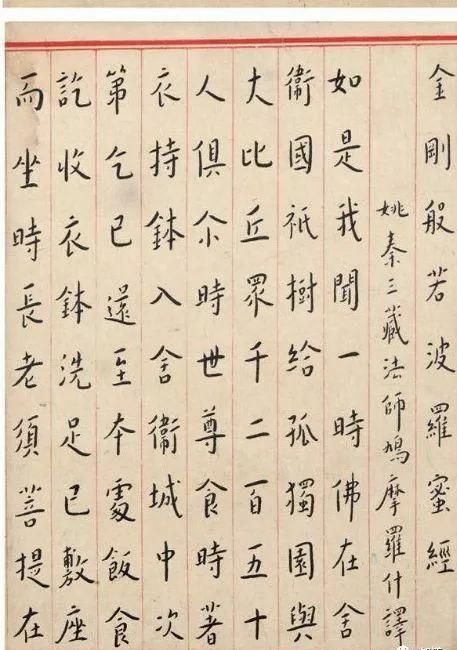 金剛般若波羅蜜經
姚秦三藏法師鳩摩羅什譯
如是我聞一時佛在舍
衞國祇樹給孤獨園與
大比丘眾千二百五十
人俱尒時世尊食時著
衣持鉢入舍衞城中次
第乞已還至本處飯食
訖收衣鉢洗足已敷座
而坐時長老須菩提在